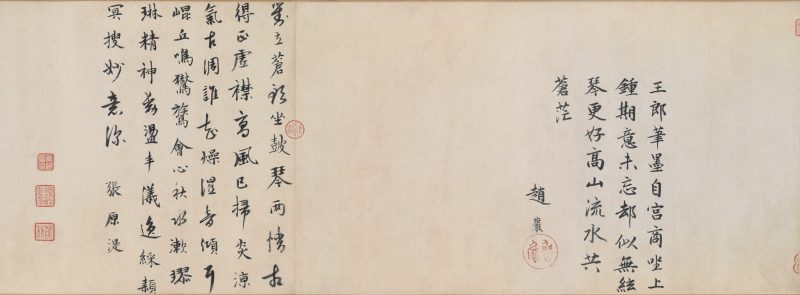 王郎筆墨自宮商坐上
鍾期意未忘却似無絃
琴更好高山流水共
蒼茫
趙巖
對立蒼官坐鼓琴兩情相
得正虛襟高風已掃炎涼
氣古調誰知燥溼音傾耳
崐丘鳴鸑鷟會心秋水漱璆
琳精神黯淡丰儀逸綵穎
冥搜妙意深
張原湜